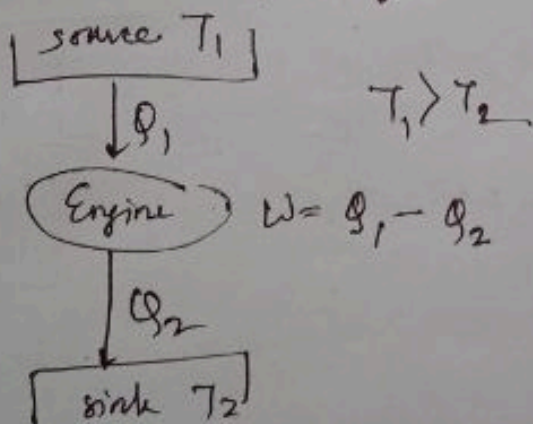 source T₁
Q₁
T₁ > T₂
Engine
W = Q₁ - Q₂
Q₂
sink T₂